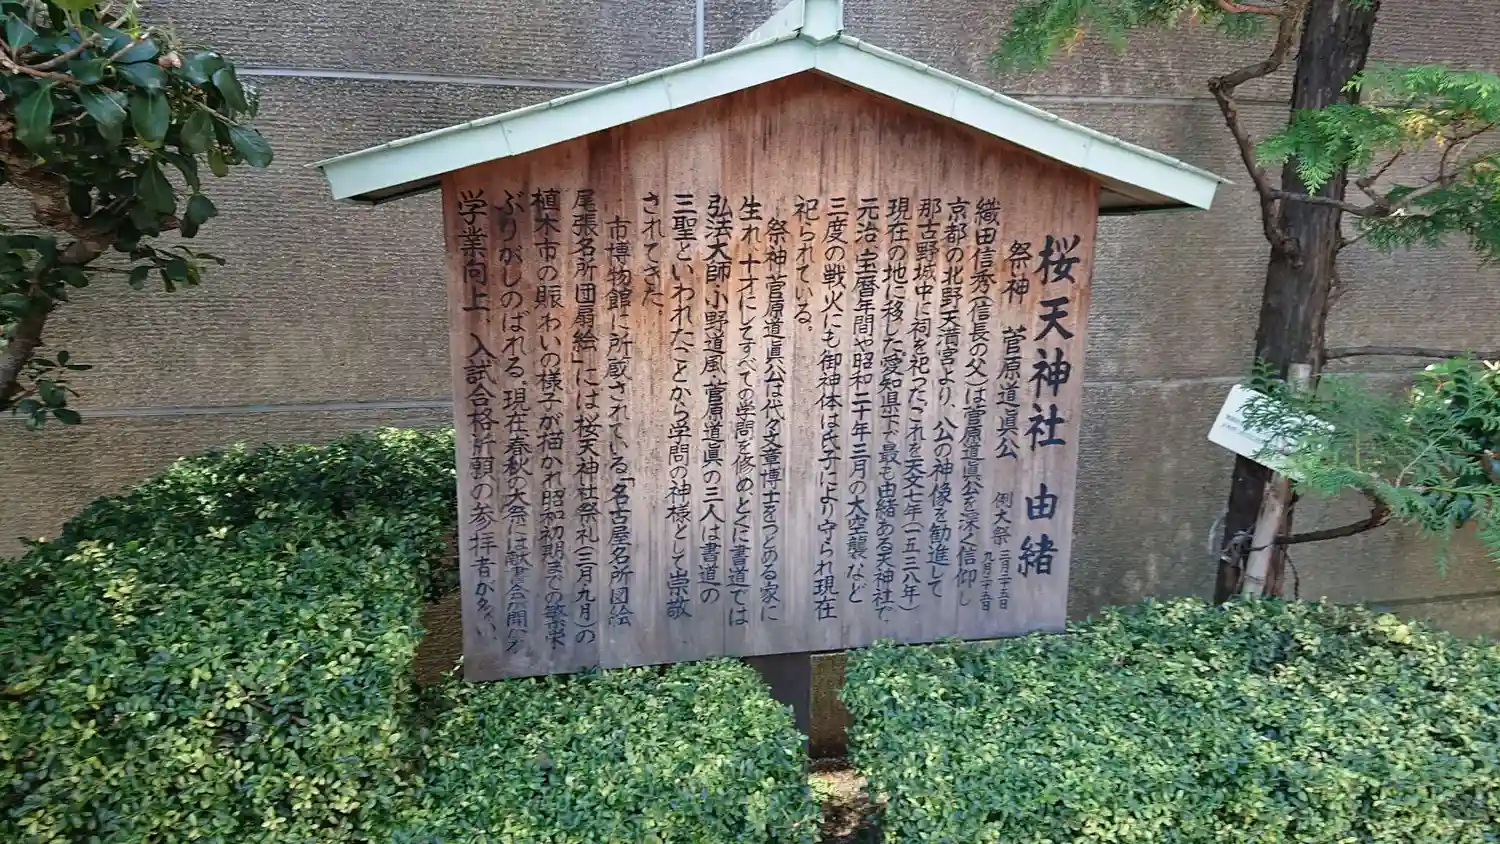 桜天神社 由緒
祭神 菅原道眞公 例大祭 二月二十五日 九月二十五日
織田信秀(信長の父)は菅原道眞公を深く信仰し
京都の北野天満宮より、公の神像を勧進して
那古野城中に祠を祀った。これを天文七年(一五三八年)
現在の地に移した。愛知県下で最も由緒ある天神社で
元治、宝暦年間や昭和二十年三月の大空襲など
三度の戦火にも御神体は氏子により守られ現在
祀られている。
祭神菅原道眞公は代々文章博士をつとめる家に
生れ、十才にしてすべての学問を修め、とくに書道では
弘法大師・小野道風・菅原道眞の三人は書道の
三聖といわれたことから学問の神様として崇敬
されてきた。
市博物館に所蔵されている「名古屋名所図絵
尾張名所団扇絵」には桜天神社祭礼(三月九月)の
植木市の賑わいの様子が描かれ昭和初期までの繁栄
ぶりがしのばれる。現在春秋の大祭には献書会が開かれ
学業向上、入試合格祈願の参拝者が多い。